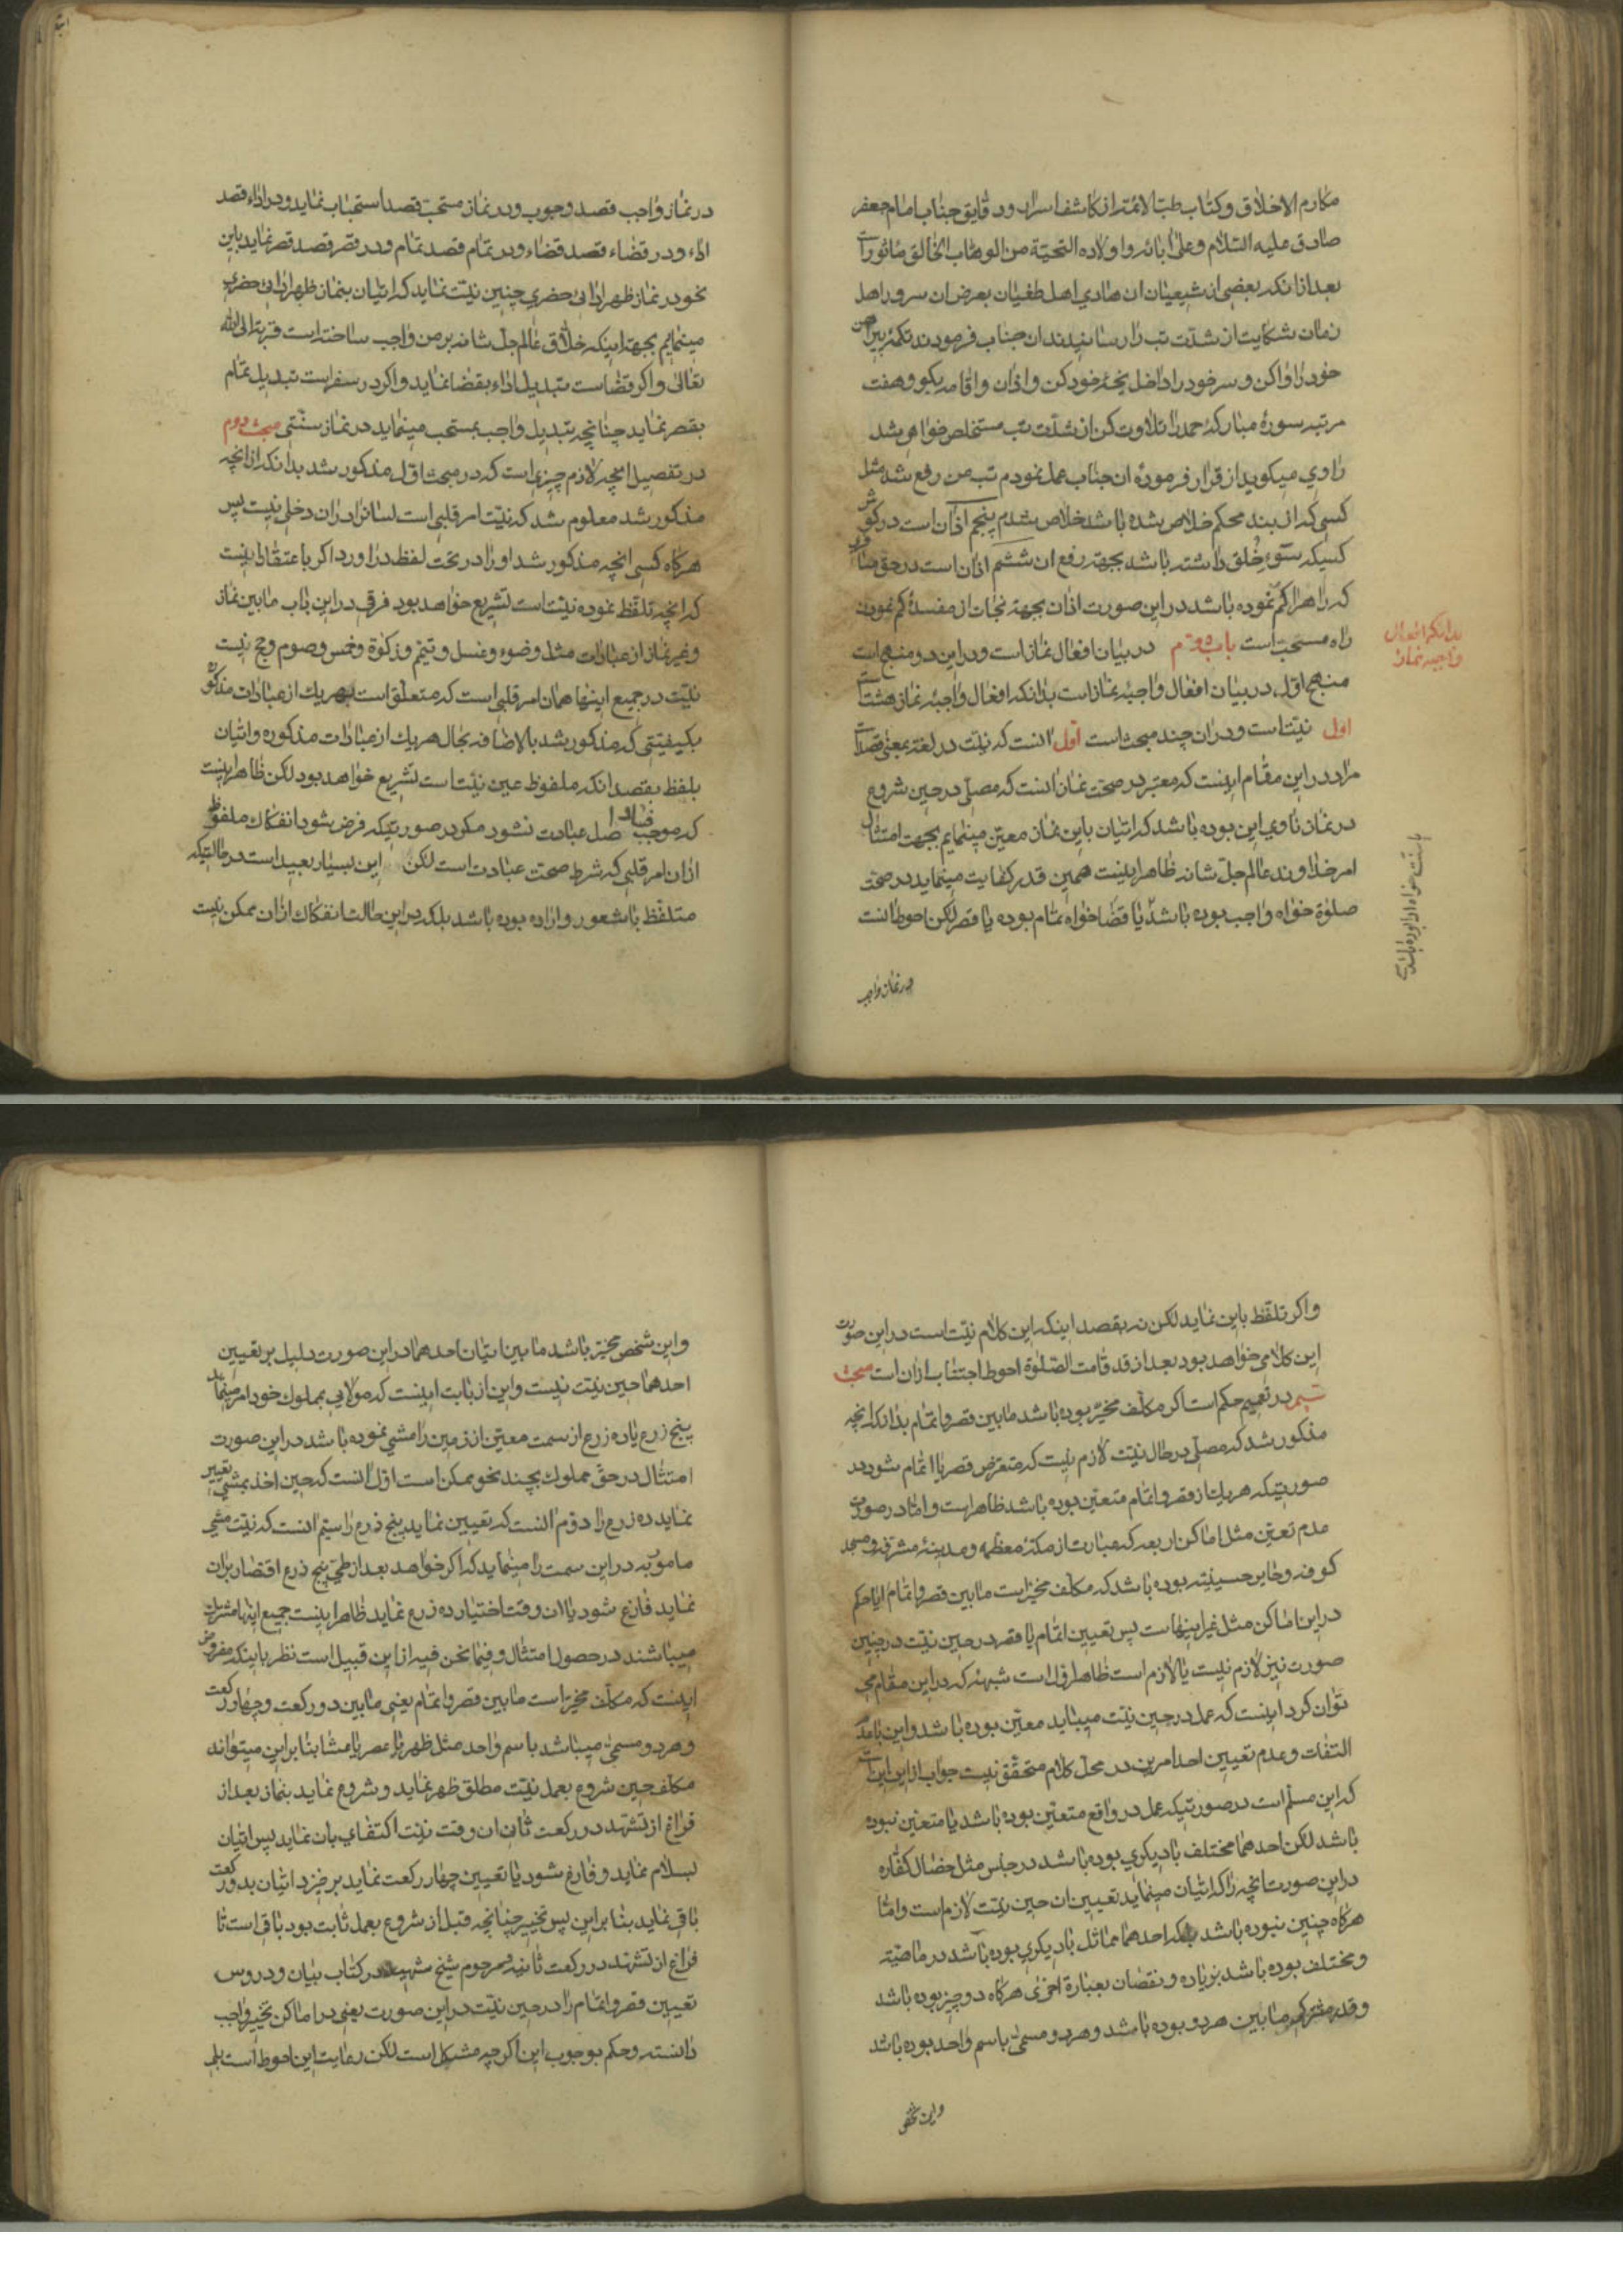 مكارم الاخلاق وكتاب طب الائمه از كاشف اسرار ودقايق جناب امام جعفر
صادق عليه السلام وعلى ابائه واولاده التحية من الوهاب الخالق ماثور است
بعد از انكه بعضى از شيعيان ان هادي اهل طغيان بعرض ان سرور اهل
زمان شكايت از شدت تب را رسانيدند ان جناب فرمودند تكمهٔ پيراهن
خود را واكن وسر خود را داخل يخهٔ خود كن واذان واقامه بكو وهفت
مرتبه سورهٔ مباركهٔ حمد را تلاوت كن از شدت تب مستخلص خواهى شد
راوي ميكويد از قرار فرمودهٔ ان جناب عمل نمودم تب من رفع شد مثل
كسى كه از بند محكم خلاص شده باشد خلاص شدم پنجم اذان است در كوش
كسيكه سوء خلق داشته باشد بجهة رفع ان ششم اذان است در حق مسافر
كه راه را كم نموده باشد در اين صورت اذان بجهة نجات از مفسدهٔ كم نمودن
راه مستحب است باب دوم در بيان افعال نماز است ودر اين دو منهج است
منهج اول در بيان افعال واجبهٔ نماز است بدانكه افعال واجبهٔ نماز هشت است
اول نيت است ودر ان چند مبحث است اول انست كه نيت در لغة بمعنى قصد است
مراد در اين مقام اينست كه معتبر در صحت نماز انست كه مصلى در حين شروع
در نماز ناوي اين بوده باشد كه اتيان باين نماز معين مينمايم بجهت امتثال
امر خداوند عالم جل شانه ظاهر اينست همين قدر كفايت مينمايد در صحت
صلوة خواه واجب بوده باشد يا قضا خواه تمام بوده يا قصر لكن احوط انست
در نماز واجب
بدانكه افعال
واجبه نماز
يا سنت خواه ادا بوده باشد
در نماز واجب قصد وجوب ودر نماز مستحب قصد استحباب نمايد ودر اداء قصد
اداء ودر قضاء قصد قضاء ودر تمام قصد تمام ودر قصر قصد قصر نمايد باين
نحو در نماز ظهر ادائى حضري چنين نيت نمايد كه اتيان بنماز ظهر ادائى حضري
مينمايم بجهة اينكه خلاق عالم جل شانه بر من واجب ساخته است قربة الى الله
تعالى واكر قضاست تبديل اداء بقضا نمايد واكر در سفر است تبديل تمام
بقصر نمايد چنانچه تبديل واجب بمستحب مينمايد در نماز سنتى مبحث دوم
در تفصيل انچه لازم چيزى است كه در مبحث اول مذكور شد بدانكه از انچه
مذكور شد معلوم شد كه نيت امر قلبى است لسانرا در ان دخلى نيست پس
هركاه كسى انچه مذكور شد او را در تحت لفظ در اورد اكر باعتقاد اينست
كه انچه تلفظ نموده نيت است تشريع خواهد بود فرقى در اين باب مابين نماز
وغير نماز از عبادات مثل وضوء وغسل وتيمم وزكوة وخمس وصوم وحج نيست
نيت در جميع اينها همان امر قلبى است كه متعلق است بهر يك از عبادات مذكوره
بكيفيتى كه مذكور شد بالاضافه بحال هر يك از عبادات مذكوره واتيان
بلفظ بقصد انكه ملفوظ عين نيت است تشريع خواهد بود لكن ظاهر اينست
كه موجب فساد اصل عبادت نشود مكر در صورتيكه فرض شود انفكاك ملفوظ
از ان امر قلبى كه شرط صحت عبادت است لكن اين بسيار بعيد است در حالتيكه
متلفظ باشعور واراده بوده باشد بلكه در اين حالت انفكاك از ان ممكن نيست
واكر تلفظ باين نمايد لكن نه بقصد اينكه اين كلام نيت است در اين صورت
اين كلامى خواهد بود بعد از قد قامت الصلوة احوط اجتناب از ان است مبحث
سيم در تعميم حكم است اكر مكلف مخير بوده باشد مابين قصر واتمام بدانكه انچه
مذكور شد كه مصلى در حال نيت لازم نيست كه متعرض قصر يا اتمام شود در
صورتيكه هر يك از قصر واتمام متعين بوده باشد ظاهر است واما در صورت
عدم تعين مثل اماكن اربعه كه عبارت از مكهٔ معظمه ومدينهٔ مشرفه ومسجد
كوفه وحاير حسينيه بوده باشد كه مكلف مخير است مابين قصر واتمام ايا حكم
در اين اماكن مثل غير اينهاست پس تعيين اتمام يا قصر در حين نيت در چنين
صورت نيز لازم نيست يا لازم است ظاهر اول است شبههٔ كه در اين مقام مى
توان كرد اينست كه عمل در حين نيت ميبايد معين بوده باشد واين با عدم
التفات وعدم تعيين احد امرين در محل كلام متحقق نيست جواب از اين اين است
كه اين مسلم است در صورتيكه عمل در واقع متعين بوده باشد يا متعين نبوده
باشد لكن احدهما مختلف با ديكري بوده باشد در جنس مثل خصال كفاره
در اين صورت انچه را كه اتيان مينمايد تعيين ان حين نيت لازم است واما
هركاه چنين نبوده باشد بلكه احدهما مماثل با ديكري بوده باشد در ماهيته
ومختلف بوده باشد بزياده ونقصان بعبارة اخرى هركاه دو چيز بوده باشد
وقدر مشترك مابين هردو بوده باشد وهردو مسمى باسم واحد بوده باشد
واين شخص
واين شخص مخير باشد مابين اتيان احدهما در اين صورت دليل بر تعيين
احدهما حين نيت نيست واين از بابت اينست كه مولايى بمملوك خود امر مينمايد
پنج زرع يا ده زرع از سمت معين از زمين را مشي نموده باشد در اين صورت
امتثال در حق مملوك بچند نحو ممكن است اول انست كه حين اخذ بمشي تعيين
نمايد ده زرع را دوم انست كه تعيين نمايد پنج ذرع را سيم انست كه نيت مشى
مامور به در اين سمت را مينمايد كه اكر خواهد بعد از طى پنج ذرع اقتصار بران
نمايد فارغ شود يا ان وقت اختيار ده زرع نمايد ظاهر اينست جميع اينها مشترك
ميباشند در حصول امتثال وفيما نحن فيه از اين قبيل است نظر باينكه مفروض
اينست كه مكلف مخير است مابين قصر واتمام يعنى مابين دو ركعت وچهار ركعت
وهردو مسمى ميباشد باسم واحد مثل ظهر يا عصر يا عشا بنا براين ميتوانه
مكلف حين شروع بعمل نيت مطلق ظهر نمايد وشروع نمايد بنماز بعد از
فراغ از تشهد در ركعت ثانى ان وقت نيت اكتفاى بان نمايد پس اتيان
بسلام نمايد وفارغ شود يا تعيين چهار ركعت نمايد برخيزد اتيان بدو ركعت
باقى نمايد بنا براين پس تخيير چنانچه قبل از شروع بعمل ثابت بود باقى است تا
فراغ از تشهد در ركعت ثانيه مرحوم شيخ شهيد در كتاب بيان ودروس
تعيين قصر واتمام را در حين نيت در اين صورت يعنى در اماكن تخيير واجب
دانسته وحكم بوجوب اين اكر چه مشكل است لكن رعايت اين احوط است